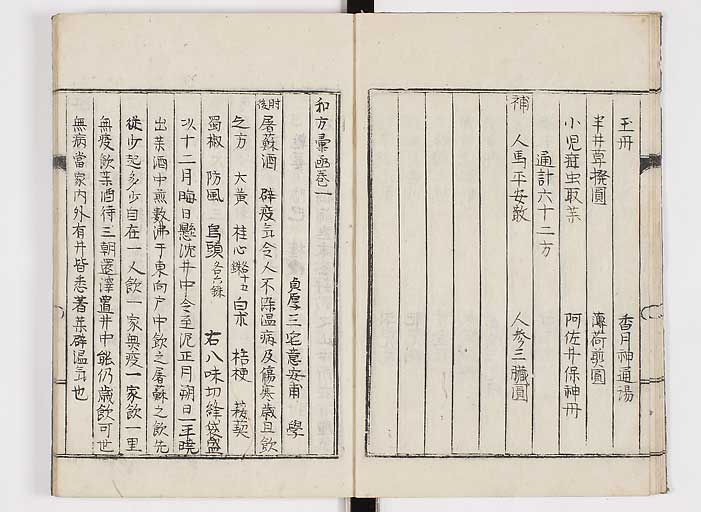 玉丹 香月神通湯
半井草撥圓 薄荷煎圓
小児疰虫取薬 阿佐井保神丹
通計六十二方
補 人馬平安散 人参三臓圓
和方彙函卷一
貞厚三宅意安甫 學
肘後 屠蘇酒 辟疫気令人不染温病及傷寒歳旦飲
之方 大黄 桂心 各十五銖 白朮 桔梗 菝葜
蜀椒 防風 烏頭 各六銖 右八味切絳袋盛
以十二月晦日懸沈井中令至泥正月朔日平曉
出薬酒中煎数沸于東向户中飲之屠蘇之飲先
從少起多少自在一人飲一家無疫一家飲一里
無疫飲薬酒待三朝還滓置井中能仍歳飲可世
無病當家内外有井皆悉著薬辟温気也